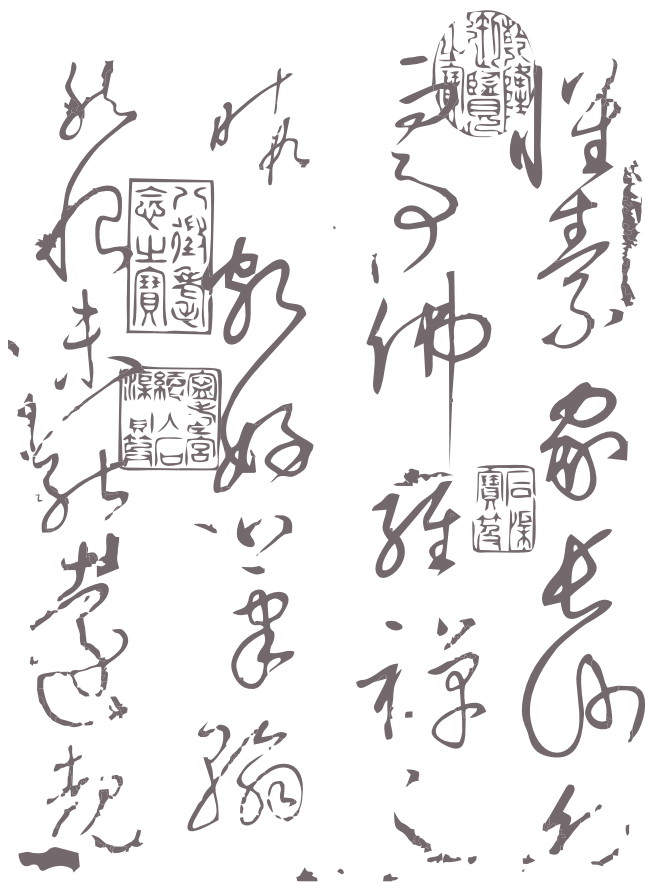 懷素家長沙幼
而事佛經禪之
暇頗好筆翰
然恨未能遠覩
乾隆御覽之寶
石渠寶笈
八徵耄念之寶
寧壽宮續入石渠寶笈